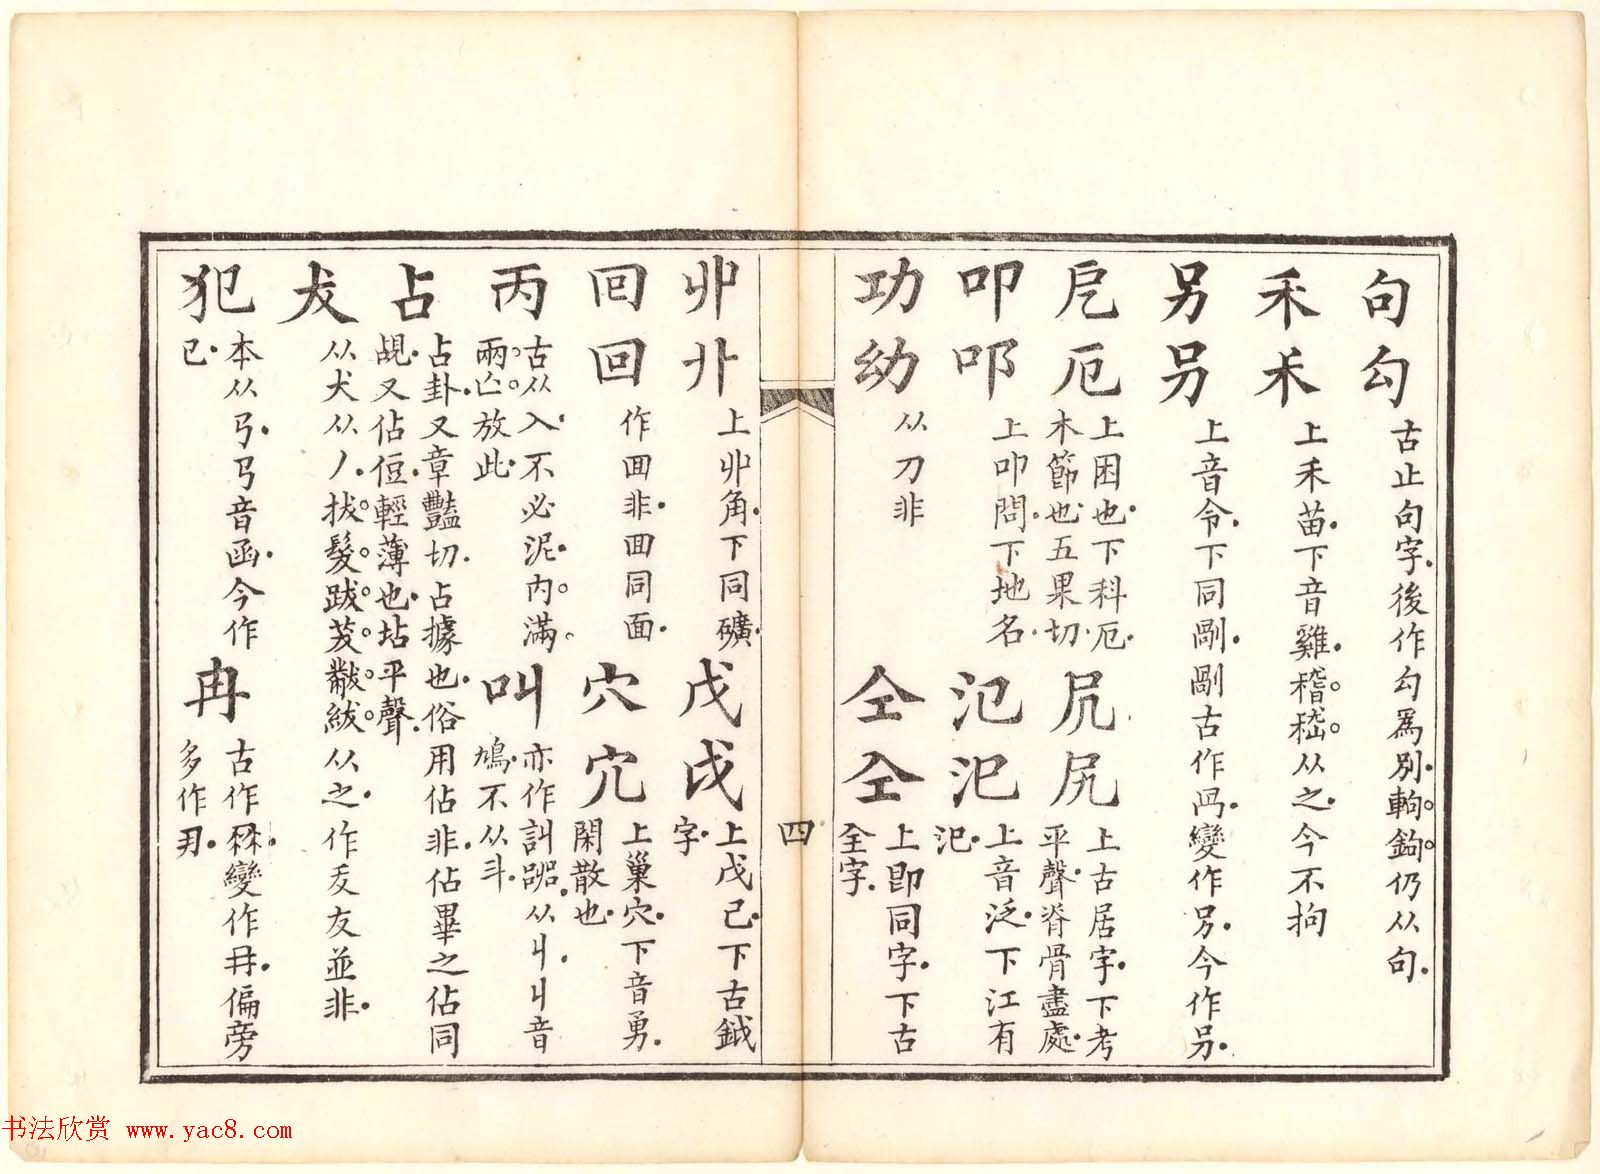 句勾 古止句字後作勾爲別軥鉤仍从句
禾禾 上禾苗下音雞稽嵇从之今不拘
另叧 上音令下同剮剮古作冎變作另今作叧
戹厄 上困也下科厄木節也五果切
凥尻 上古居字下考平聲脊骨盡處
叩叩 上叩問下地名
氾汜 上音泛下江有汜
功㓜 从刀非
仝仝 上即同字下古全字
四
丱卝 上丱角下同礦
戊戉 上戊己下古鉞字
回囘 作囬非囬同面
穴宂 上巢穴下音勇閑散也
丙 古从入不必泥內滿兩亼放此
叫 亦作訆嘂从丩丩音鳩不从斗
占 占卦又章豔切占據也俗用佔非佔畢之佔同覘又佔侸輕薄也坫平聲
犮 从犬从丿拔髮跋茇黻紱从之作叐友並非
犯 本从㔾㔾音函今作巳
冉 古作冄變作冉偏旁多作冄
书法欣赏 www.yac8.com